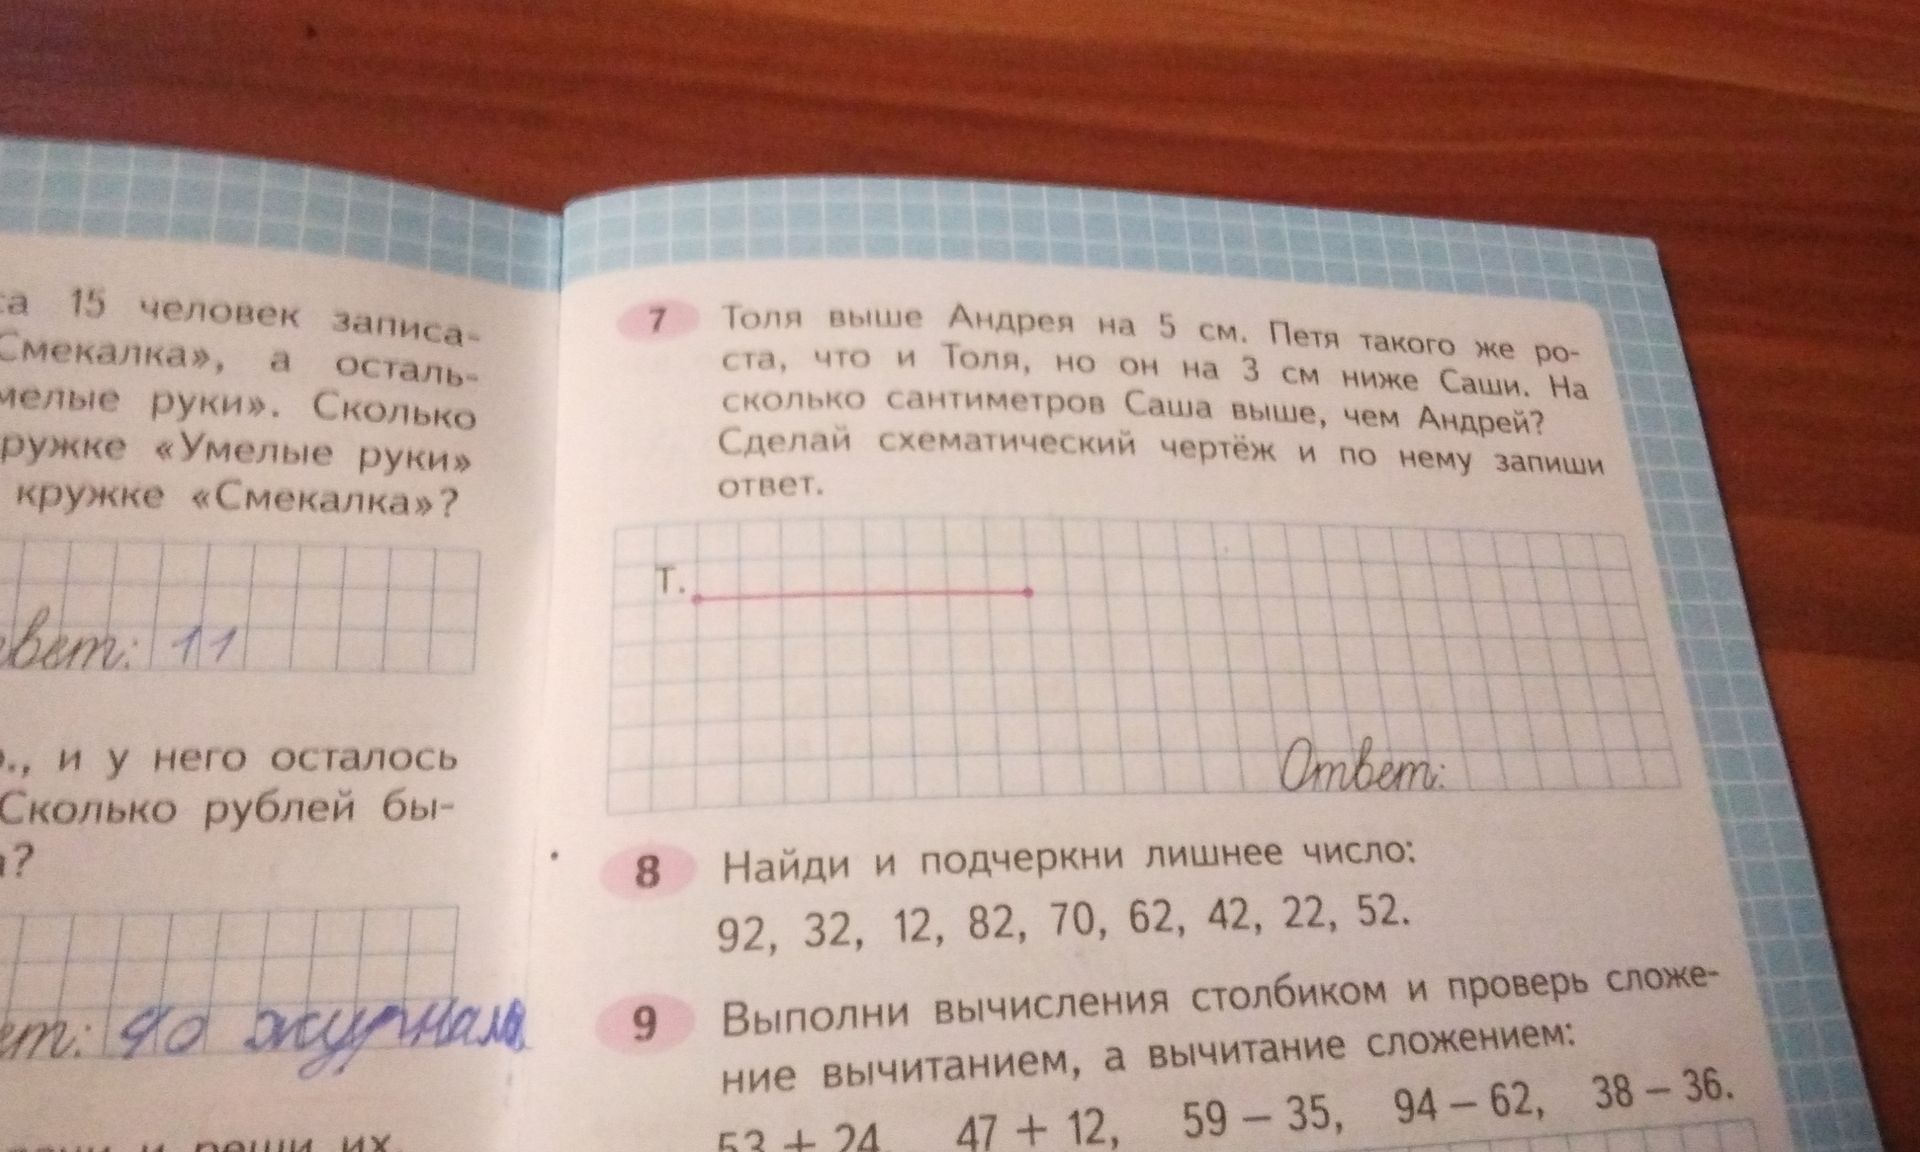 15 человек записа-
Смекалка», а осталь-
руки». Сколько
«Умелые руки»
кружке «Смекалка»?
11
и у него осталось
Сколько рублей бы-
журнала
и реши их.
7 Толя выше Андрея на 5 см. Петя такого же ро-
ста, что и Толя, но он на 3 см ниже Саши. На
сколько сантиметров Саша выше, чем Андрей?
Сделай схематический чертёж и по нему запиши
ответ.
Т.
Ответ:
8 Найди и подчеркни лишнее число:
92, 32, 12, 82, 70, 62, 42, 22, 52.
9 Выполни вычисления столбиком и проверь сложе-
ние вычитанием, а вычитание сложением:
53 + 24, 47 + 12, 59 – 35, 94 – 62, 38 – 36.